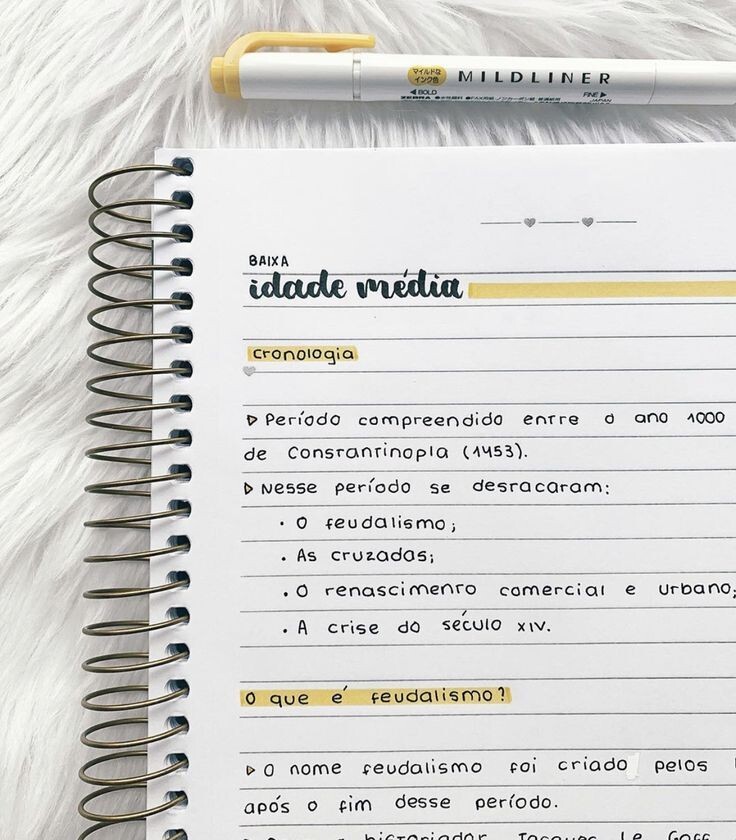 マイルドな
インク色
MILDLINER
◀BOLD
FINE▶
ZEBRA
JAPAN
BAIXA
idade média
cronologia
▷ Período compreendido entre o ano 1000
de Constantinopla (1453).
▷ Nesse período se destacaram:
• O feudalismo;
• As cruzadas;
• O renascimento comercial e urbano;
• A crise do século XIV.
O que é feudalismo?
▷ O nome feudalismo foi criado pelos
após o fim desse período.
historiador Jacques Le Goff